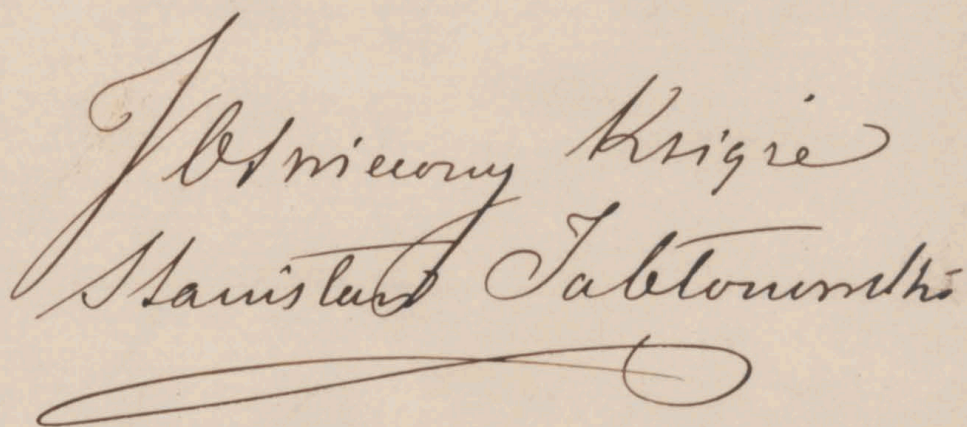 J Oświecony Książe
Stanisław Jabłonowski